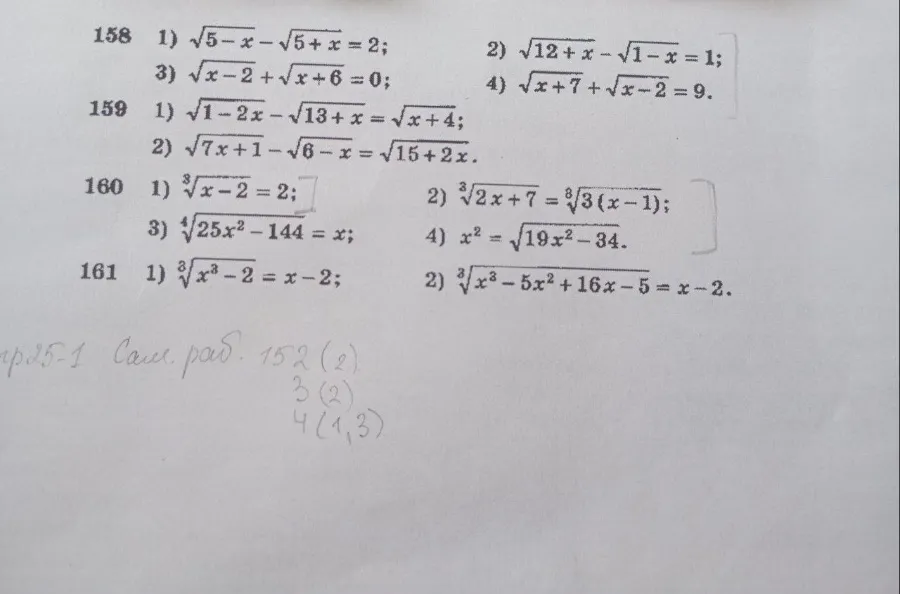 158 1) √(5 − x) − √(5 + x) = 2; 2) √(12 + x) − √(1 − x) = 1;
3) √(x − 2) + √(x + 6) = 0; 4) √(x + 7) + √(x − 2) = 9.
159 1) √(1 − 2x) − √(13 + x) = √(x + 4);
2) √(7x + 1) − √(6 − x) = √(15 + 2x).
160 1) ∛(x − 2) = 2; 2) ∛(2x + 7) = ∛(3(x − 1));
3) ∜(25x² − 144) = x; 4) x² = √(19x² − 34).
161 1) ∛(x³ − 2) = x − 2; 2) ∛(x³ − 5x² + 16x − 5) = x − 2.
гр25-1 Сам. раб. 152 (2)
3 (2)
4 (1,3)